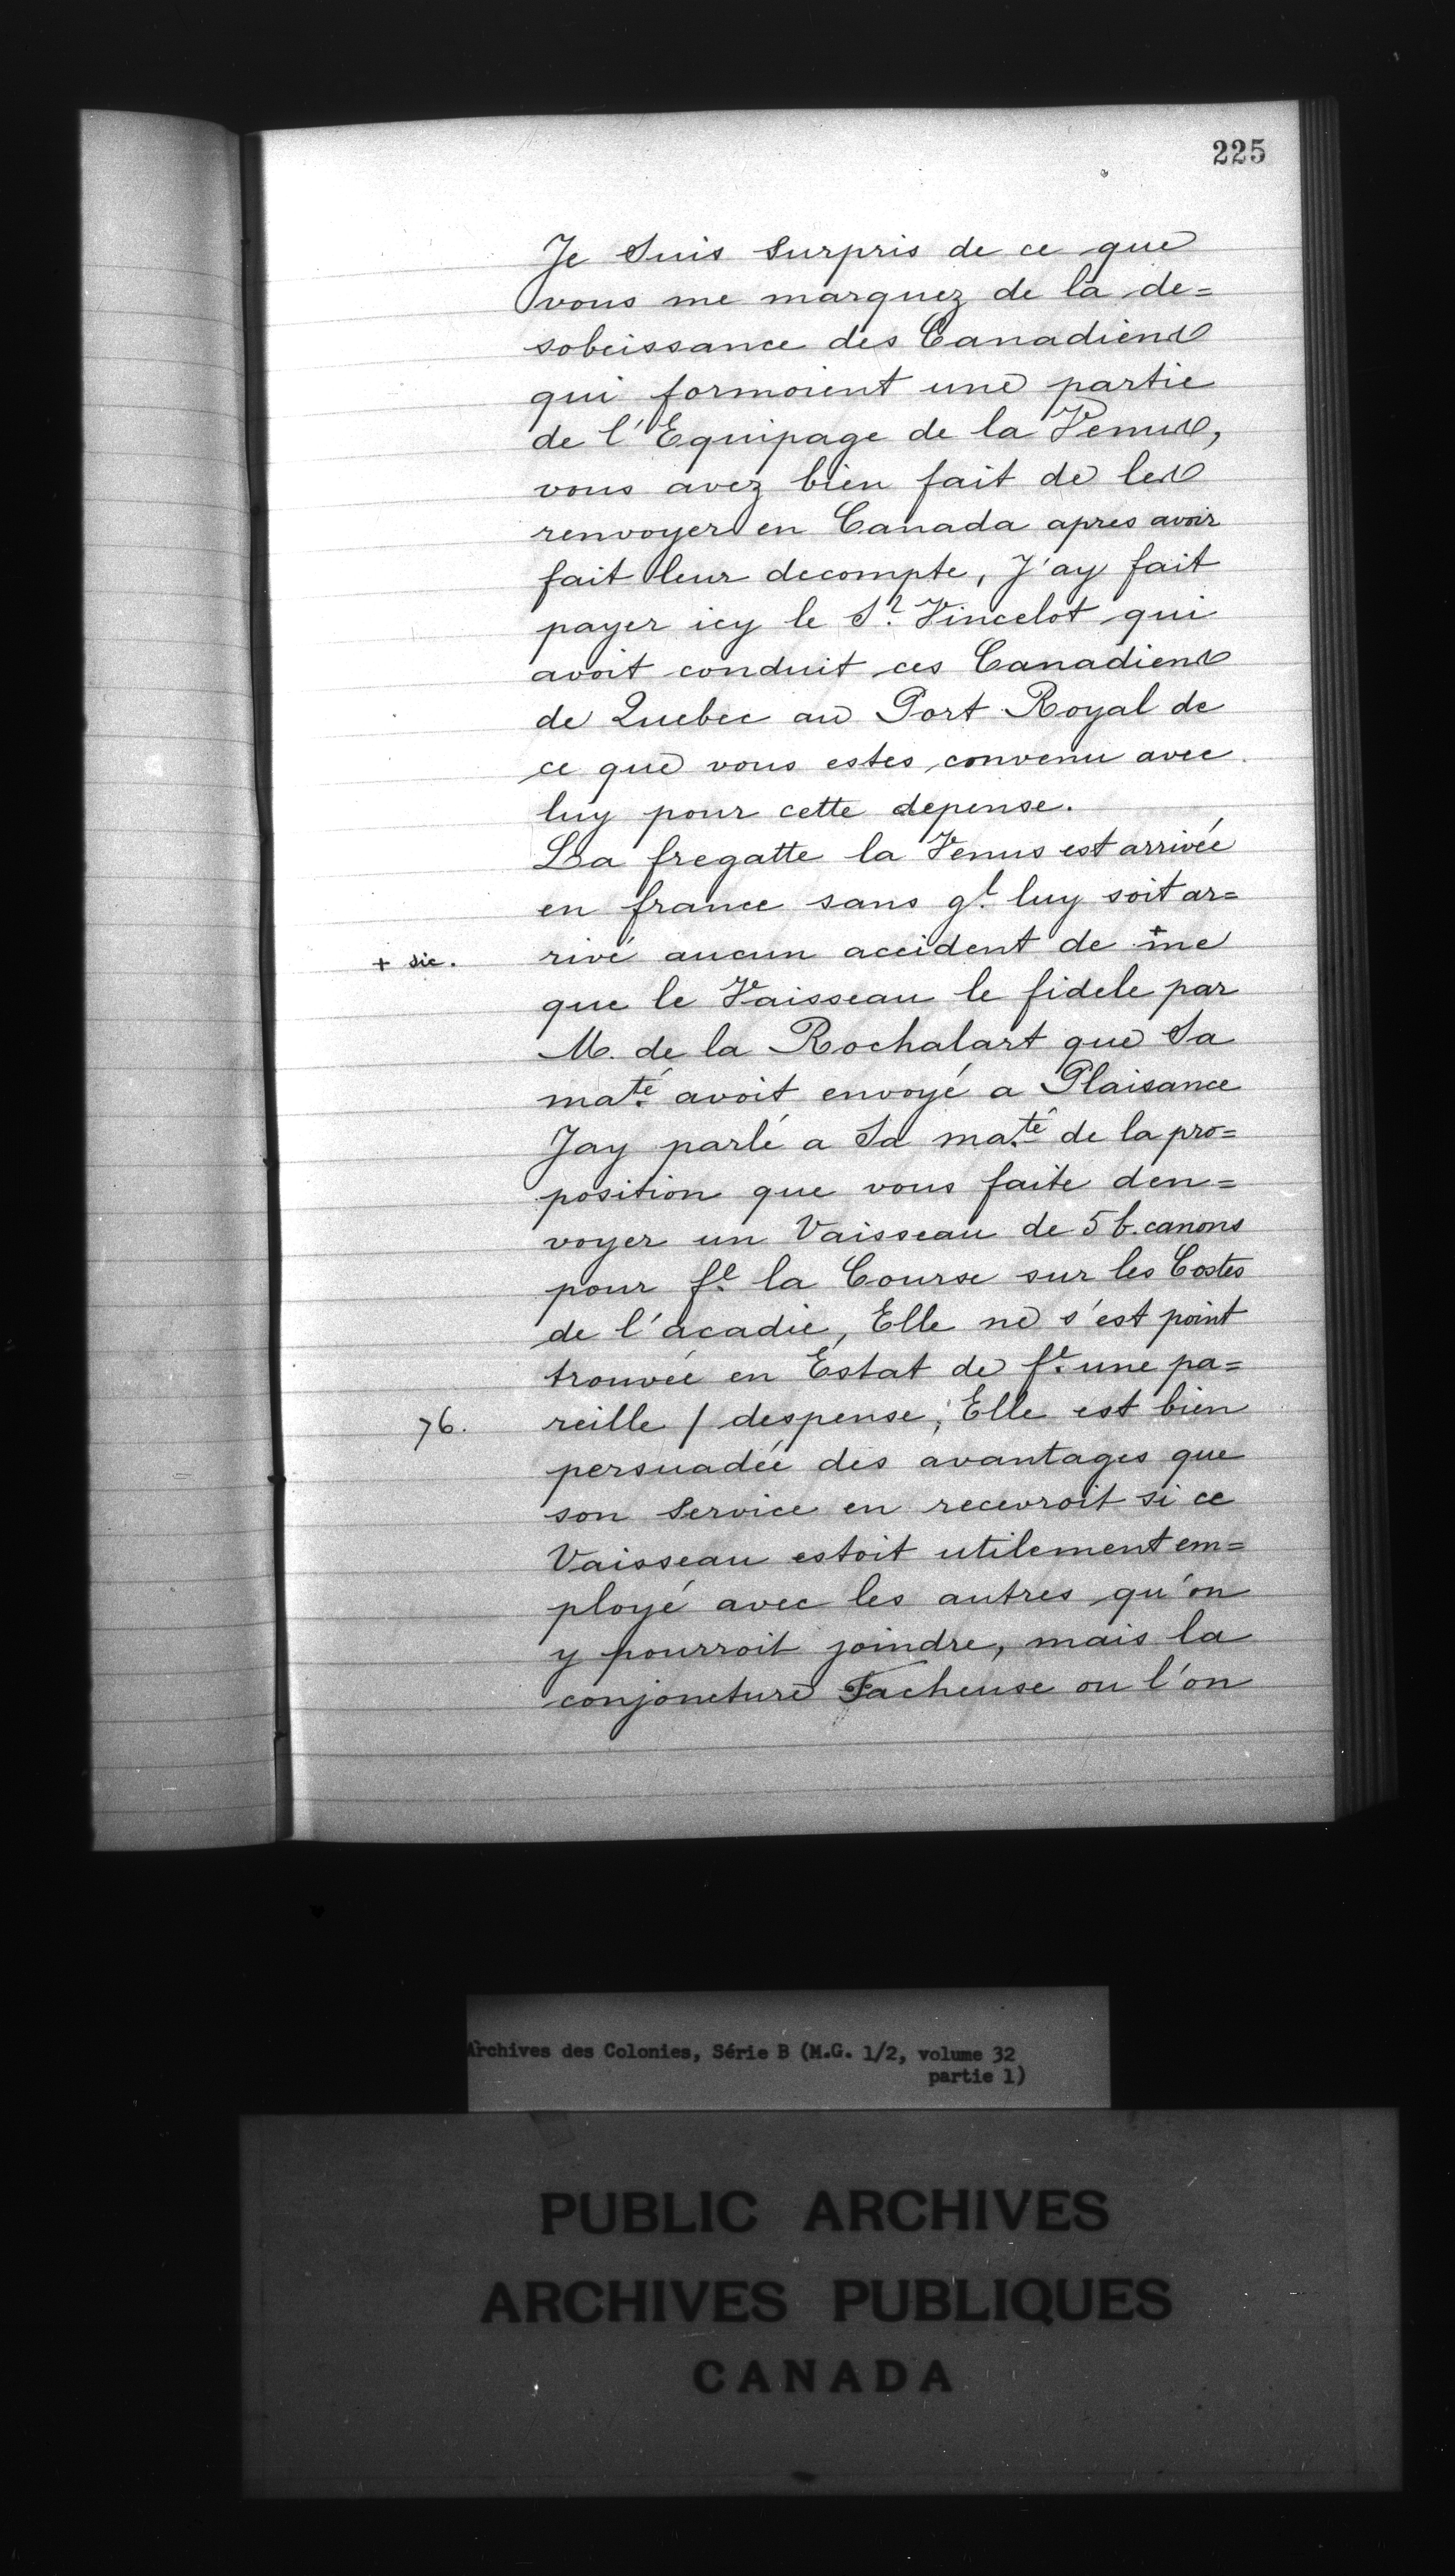 225
Je Suis Surpris de ce que
vous me marquez de la de=
sobeissance des Canadiens
qui formoient une partie
de l'Equipage de la Venus,
vous avez bien fait de les
renvoyer en Canada apres avoir
fait leur decompte, J'ay fait
payer icy le Sr. Vincelot qui
avoit conduit ces Canadiens
de Quebec au Port Royal de
ce que vous estes convenu avec
luy pour cette depense.
La fregatte la Venus est arrivée
en france sans ql. luy soit ar=
+ sic. rivé aucun accident de +me
que le Vaisseau le fidele par
M. de la Rochalart que Sa
maté. avoit envoyé a Plaisance
Jay parlé a Sa maté. de la pro=
position que vous faite den=
voyer un Vaisseau de 56. canons
pour fe. la Course sur les Costes
de l'acadie, Elle ne s'est point
trouvée en Estat de fe. une pa=
76. reille / despense; Elle est bien
persuadée des avantages que
son Service en recevroit si ce
Vaisseau estoit utilement em=
ployé avec les autres qu'on
y pourroit joindre, mais la
conjoncture Facheuse ou l'on
Archives des Colonies, Série B (M.G. 1/2, volume 32
partie 1)
PUBLIC ARCHIVES
ARCHIVES PUBLIQUES
CANADA